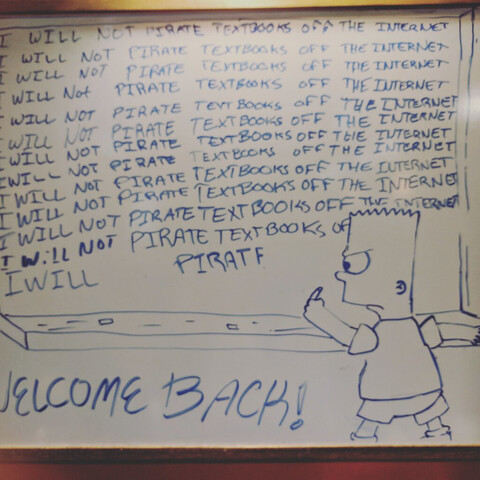 I WILL NOT PIRATE TEXTBOOKS OFF THE INTERNET
I WILL NOT PIRATE TEXTBOOKS OFF THE INTERNET
I WILL NOT PIRATE TEXTBOOKS OFF THE INTERNET
I WILL NOT PIRATE TEXTBOOKS OFF THE INTERNET
I WILL NOT PIRATE TEXTBOOKS OFF THE INTERNET
I WILL NOT PIRATE TEXTBOOKS OFF THE INTERNET
I WILL NOT PIRATE TEXTBOOKS OFF THE INTERNET
I WILL NOT PIRATE TEXTBOOKS OFF THE INTERNET
I WILL NOT PIRATE TEXTBOOKS OFF THE INTERNET
I WILL NOT PIRATE TEXTBOOKS OFF THE INTERNET
I WILL NOT PIRATE TEXTBOOKS OFF THE INTERNET
I WiLL NOT PIRATE TEXTBOOKS OF
I WILL PIRATE
WELCOME BACK!